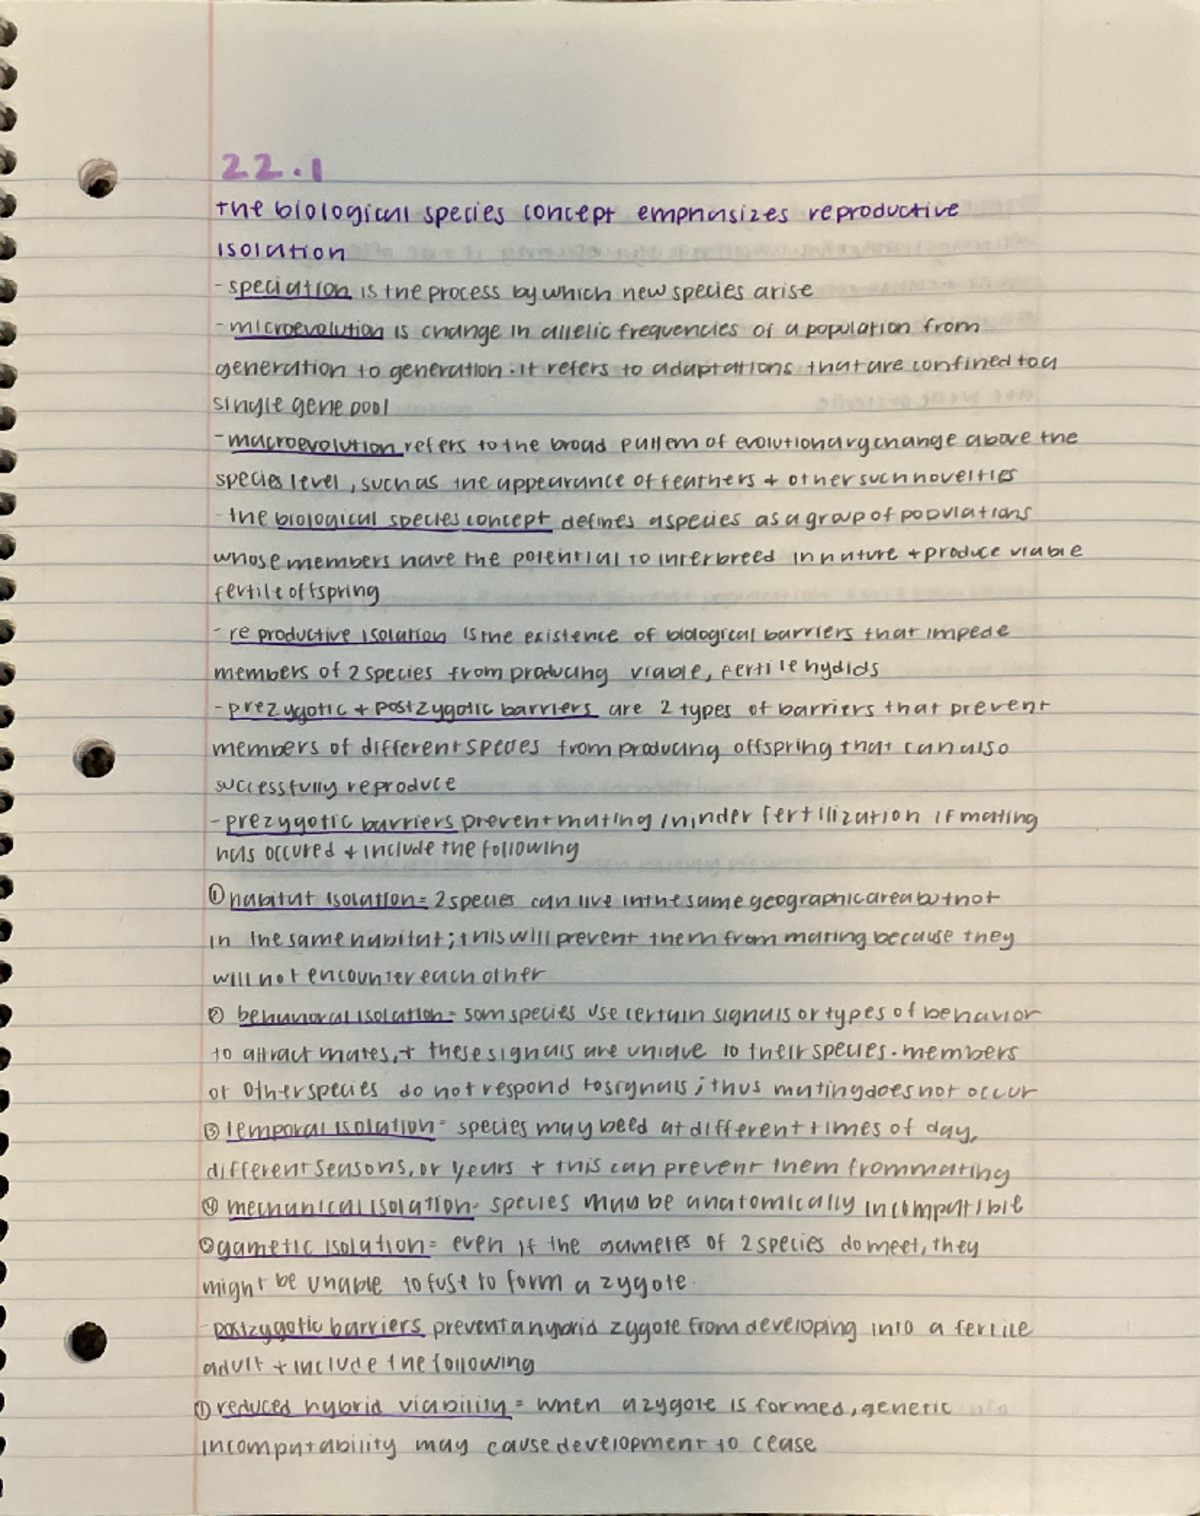 22.1
the biological species concept emphasizes reproductive
isolation
- speciation is the process by which new species arise
- microevolution is change in allelic frequencies of a population from
generation to generation. it refers to adaptations that are confined to a
single gene pool
- macroevolution refers to the broad pattern of evolutionary change above the
species level, such as the appearance of feathers + other such novelties
- the biological species concept defines a species as a group of populations
whose members have the potential to interbreed in nature + produce viable
fertile offspring
- reproductive isolation is the existence of biological barriers that impede
members of 2 species from producing viable, fertile hydids
- prezygotic + postzygotic barriers are 2 types of barriers that prevent
members of different species from producing offspring that can also
successfully reproduce
- prezygotic barriers prevent mating / ninder fertilization if mating
has occured + include the following
① habitat isolation = 2 species can live in the same geographic area but not
in the same habitat; this will prevent them from mating because they
will not encounter each other
② behavioral isolation = som species use certain signals or types of behavior
to attract mates, + these signals are unique to their species. members
of other species do not respond to signals; thus mating does not occur
③ temporal isolation = species may beed at different times of day,
different seasons, or years + this can prevent them from mating
④ mechanical isolation = species may be anatomically incompatible
⑤ gametic isolation = even if the gametes of 2 species do meet, they
might be unable to fuse to form a zygote.
- postzygotic barriers prevent a hybrid zygote from developing into a fertile
adult + include the following
① reduced hybrid viability = when a zygote is formed, genetic
incompatability may cause development to cease